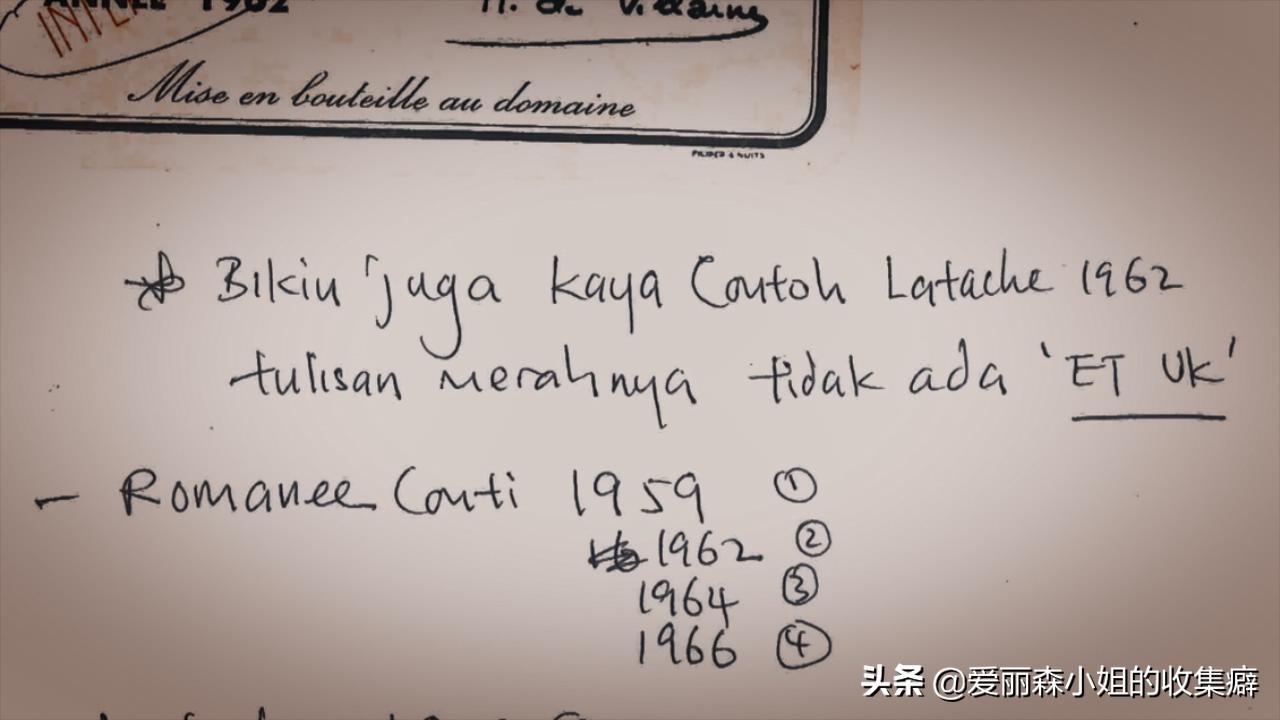 ANNÉE 1962
Mise en bouteille au domaine
Bikin juga kaya Contoh Latache 1962
tulisan merahnya tidak ada 'ET UK'
- Romanee Conti 1959 ①
1962 ②
1964 ③
1966 ④
头条 @爱丽森小姐的收集癖